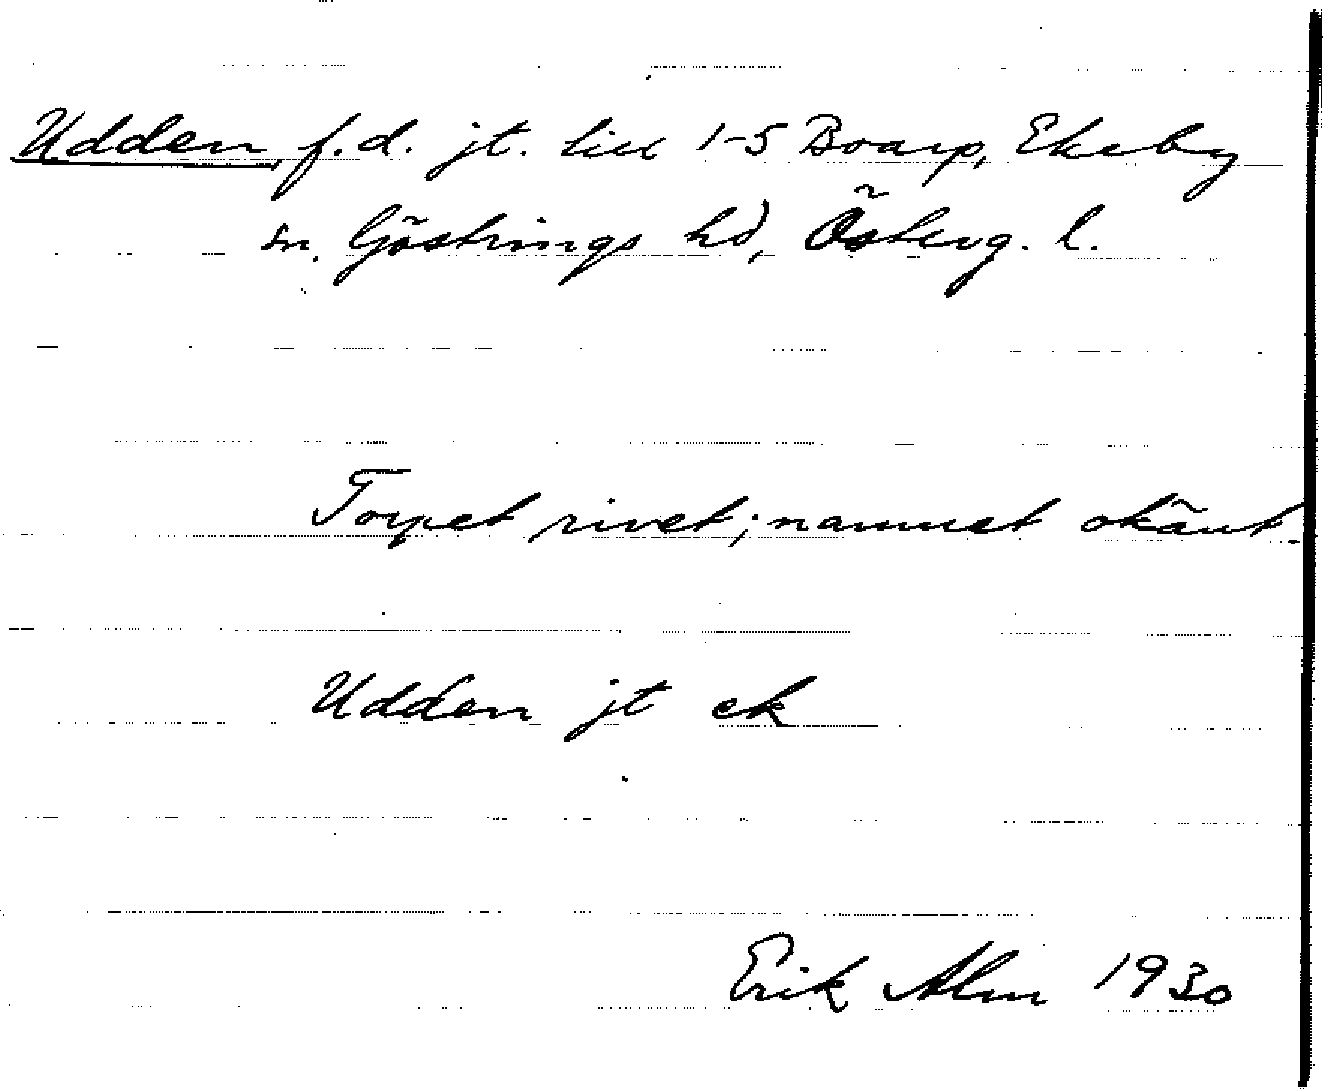 Udden, f.d. jt. till 1-5 Boarp, Ekeby
sn, Göstrings hd, Österg. l.
Torpet rivet; namnet okänt.
Udden jt ek
Erik Alm 1930